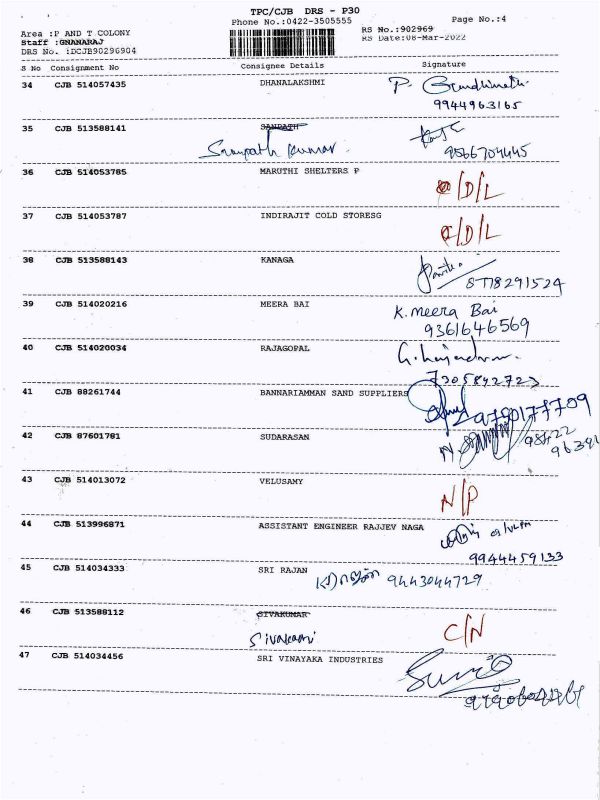 TPC/CJB DRS - P30
Phone No.:0422-3505555
Page No.:4
Area :P AND T COLONY
RS No.:902969
Staff :GNANARAJ
RS Date:08-Mar-2022
DRS No. :DCJB90296904
S No Consignment No Consignee Details Signature
34 CJB 514057435 DHANALAKSHMI P.
9944963165
35 CJB 513588141 SANPATH
Sampath Kumar 9566704445
36 CJB 514053785 MARUTHI SHELTERS P
/D/L
37 CJB 514053787 INDIRAJIT COLD STORESG
/D/L
38 CJB 513588143 KANAGA
8778291524
39 CJB 514020216 MEERA BAI K. meera Bai
9361646569
40 CJB 514020034 RAJAGOPAL
7305842723
41 CJB 88261744 BANNARIAMMAN SAND SUPPLIERS
9790177709
42 CJB 87601781 SUDARASAN
43 CJB 514013072 VELUSAMY
N/P
44 CJB 513996871 ASSISTANT ENGINEER RAJJEV NAGA
9944459133
45 CJB 514034333 SRI RAJAN 9443044729
46 CJB 513588112 SIVAKUMAR
Sivakami C/N
47 CJB 514034456 SRI VINAYAKA INDUSTRIES